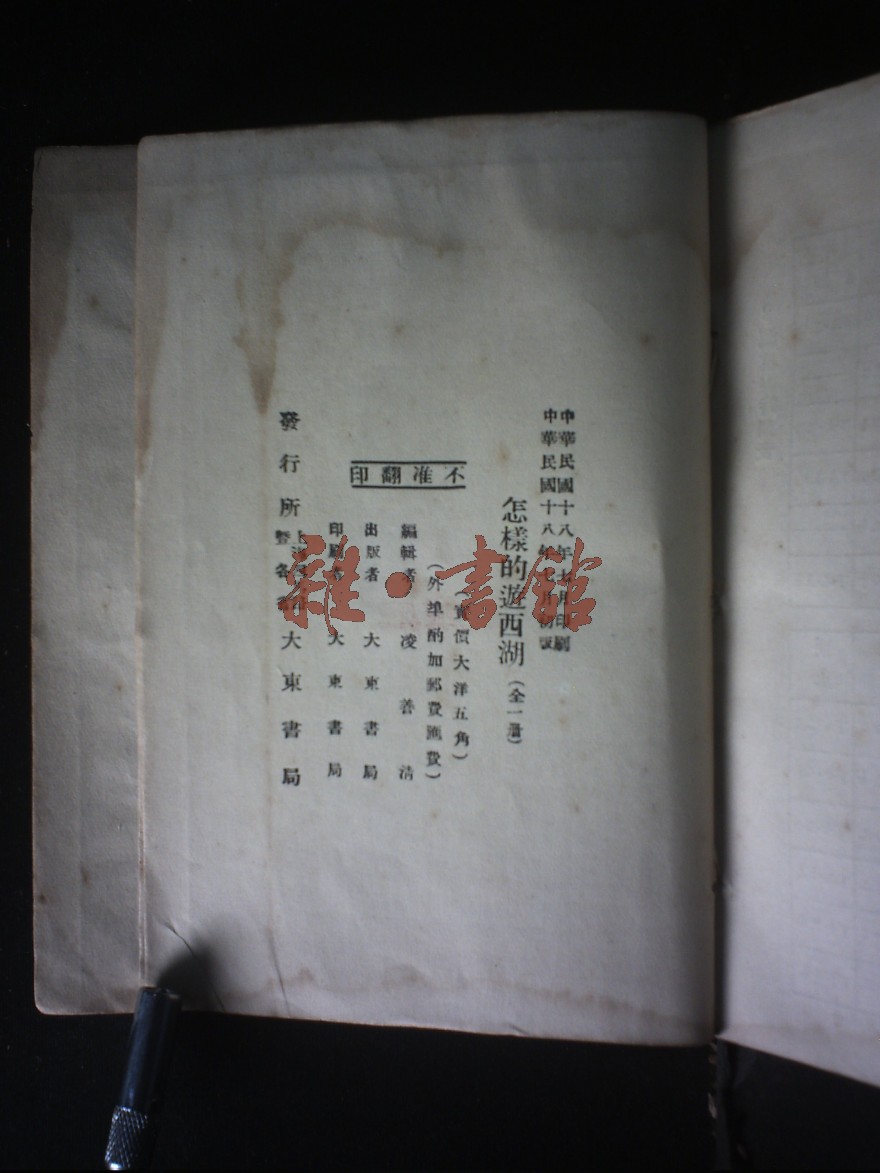 中華民國十八年七月印刷
中華民國十八年七月初版
怎樣的遊西湖(全一册)
(實價大洋五角)
(外埠酌加郵費匯費)
不准翻印
編輯者 凌善清
出版者 大東書局
印刷者 大東書局
發行所 大東書局
雜·書館